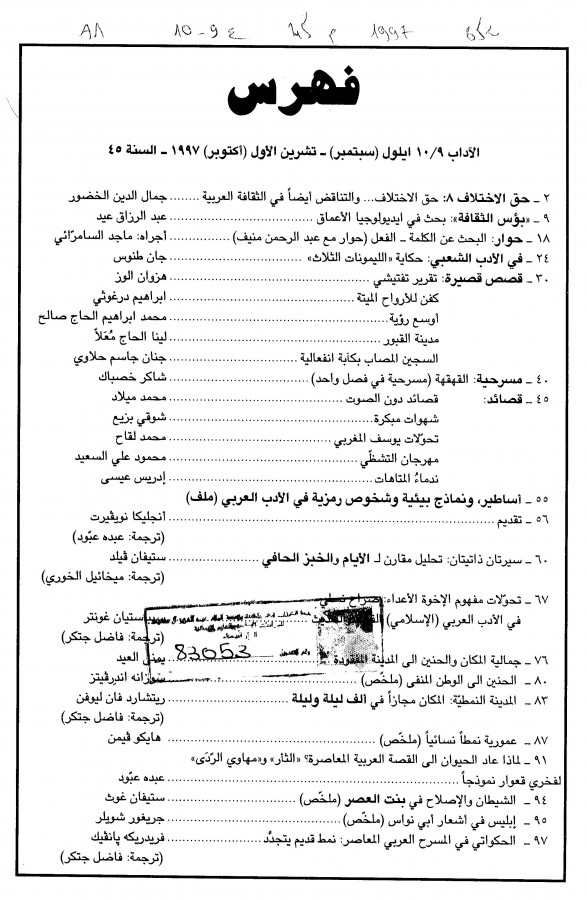 1997
فهرس
الآداب ١٠/٩ ايلول (سبتمبر) ــ تشرين الأول (أكتوبر) ١٩٩٧ ــ السنة ٤٥
٢ ــ حق الاختلاف ٨: حق الاختلاف... والتناقض أيضاً في الثقافة العربية ........ جمال الدين الخضور
٩ ــ «بؤس الثقافة»: بحث في ايديولوجيا الأعماق ........ عبد الرزاق عيد
١٨ ــ حوار: البحث عن الكلمة ــ الفعل (حوار مع عبد الرحمن منيف) ........ أجراه: ماجد السامرّائي
٢٤ ــ في الأدب الشعبي: حكاية «الليمونات الثلاث» ........ جان طنوس
٣٠ ــ قصص قصيرة: تقرير تفتيشي ........ هزوان الوز
كفن للأرواح الميتة ........ ابراهيم درغوثي
أوسع رؤية ........ محمد ابراهيم الحاج صالح
مدينة القبور ........ لينا الحاج مُعَلاّ
السجين المصاب بكآبة انفعالية ........ جنان جاسم حلاوي
٤٠ ــ مسرحية: القهقهة (مسرحية في فصل واحد) ........ شاكر خصباك
٤٥ ــ قصائد: قصائد دون الصوت ........ محمد ميلاد
شهوات مبكرة ........ شوقي بزيع
تحوّلات يوسف المغربي ........ محمد لقاح
مهرجان التشظّي ........ محمود علي السعيد
ندماءُ المتاهات ........ إدريس عيسى
٥٥ ــ أساطير، ونماذج بيئية وشخوص رمزية في الأدب العربي (ملف)
٥٦ ــ تقديم ........ أنجليكا نويڤيرت
(ترجمة: عبده عبّود)
٦٠ ــ سيرتان ذاتيتان: تحليل مقارن لـ الأيام والخبز الحافي ........ ستيفان ڤيلد
(ترجمة: ميخائيل الخوري)
٦٧ ــ تحوّلات مفهوم الإخوة الأعداء: صراع نسلي
في الأدب العربي (الإسلامي) ستيان غونتر
(ترجمة: فاضل جتكر)
83053
٧٦ ــ جمالية المكان والحنين الى المدينة المفقودة ........ يمنى العيد
٨٠ ــ الحنين الى الوطن المنفى (ملخّص) ........ سوزانه اندرڤيتز
٨٣ ــ المدينة النمطيّة: المكان مجازاً في ألف ليلة وليلة ........ ريتشارد فان ليوفن
(ترجمة: فاضل جتكر)
٨٧ ــ عمورية نمطاً نسائياً (ملخّص) ........ هايكو ڤيمن
٩١ ــ لماذا عاد الحيوان الى القصة العربية المعاصرة؟ «الثار» و«مهاوي الرّدَى»
لفخري قعوار نموذجاً ........ عبده عبّود
٩٤ ــ الشيطان والإصلاح في بنت العصر (ملخّص) ........ ستيفان غوث
٩٥ ــ إبليس في أشعار أبي نواس (ملخّص) ........ جريغور شويلر
٩٧ ــ الحكواتي في المسرح العربي المعاصر: نمط قديم يتجدّد ........ فريدريكه پانڤيك
(ترجمة: فاضل جتكر)